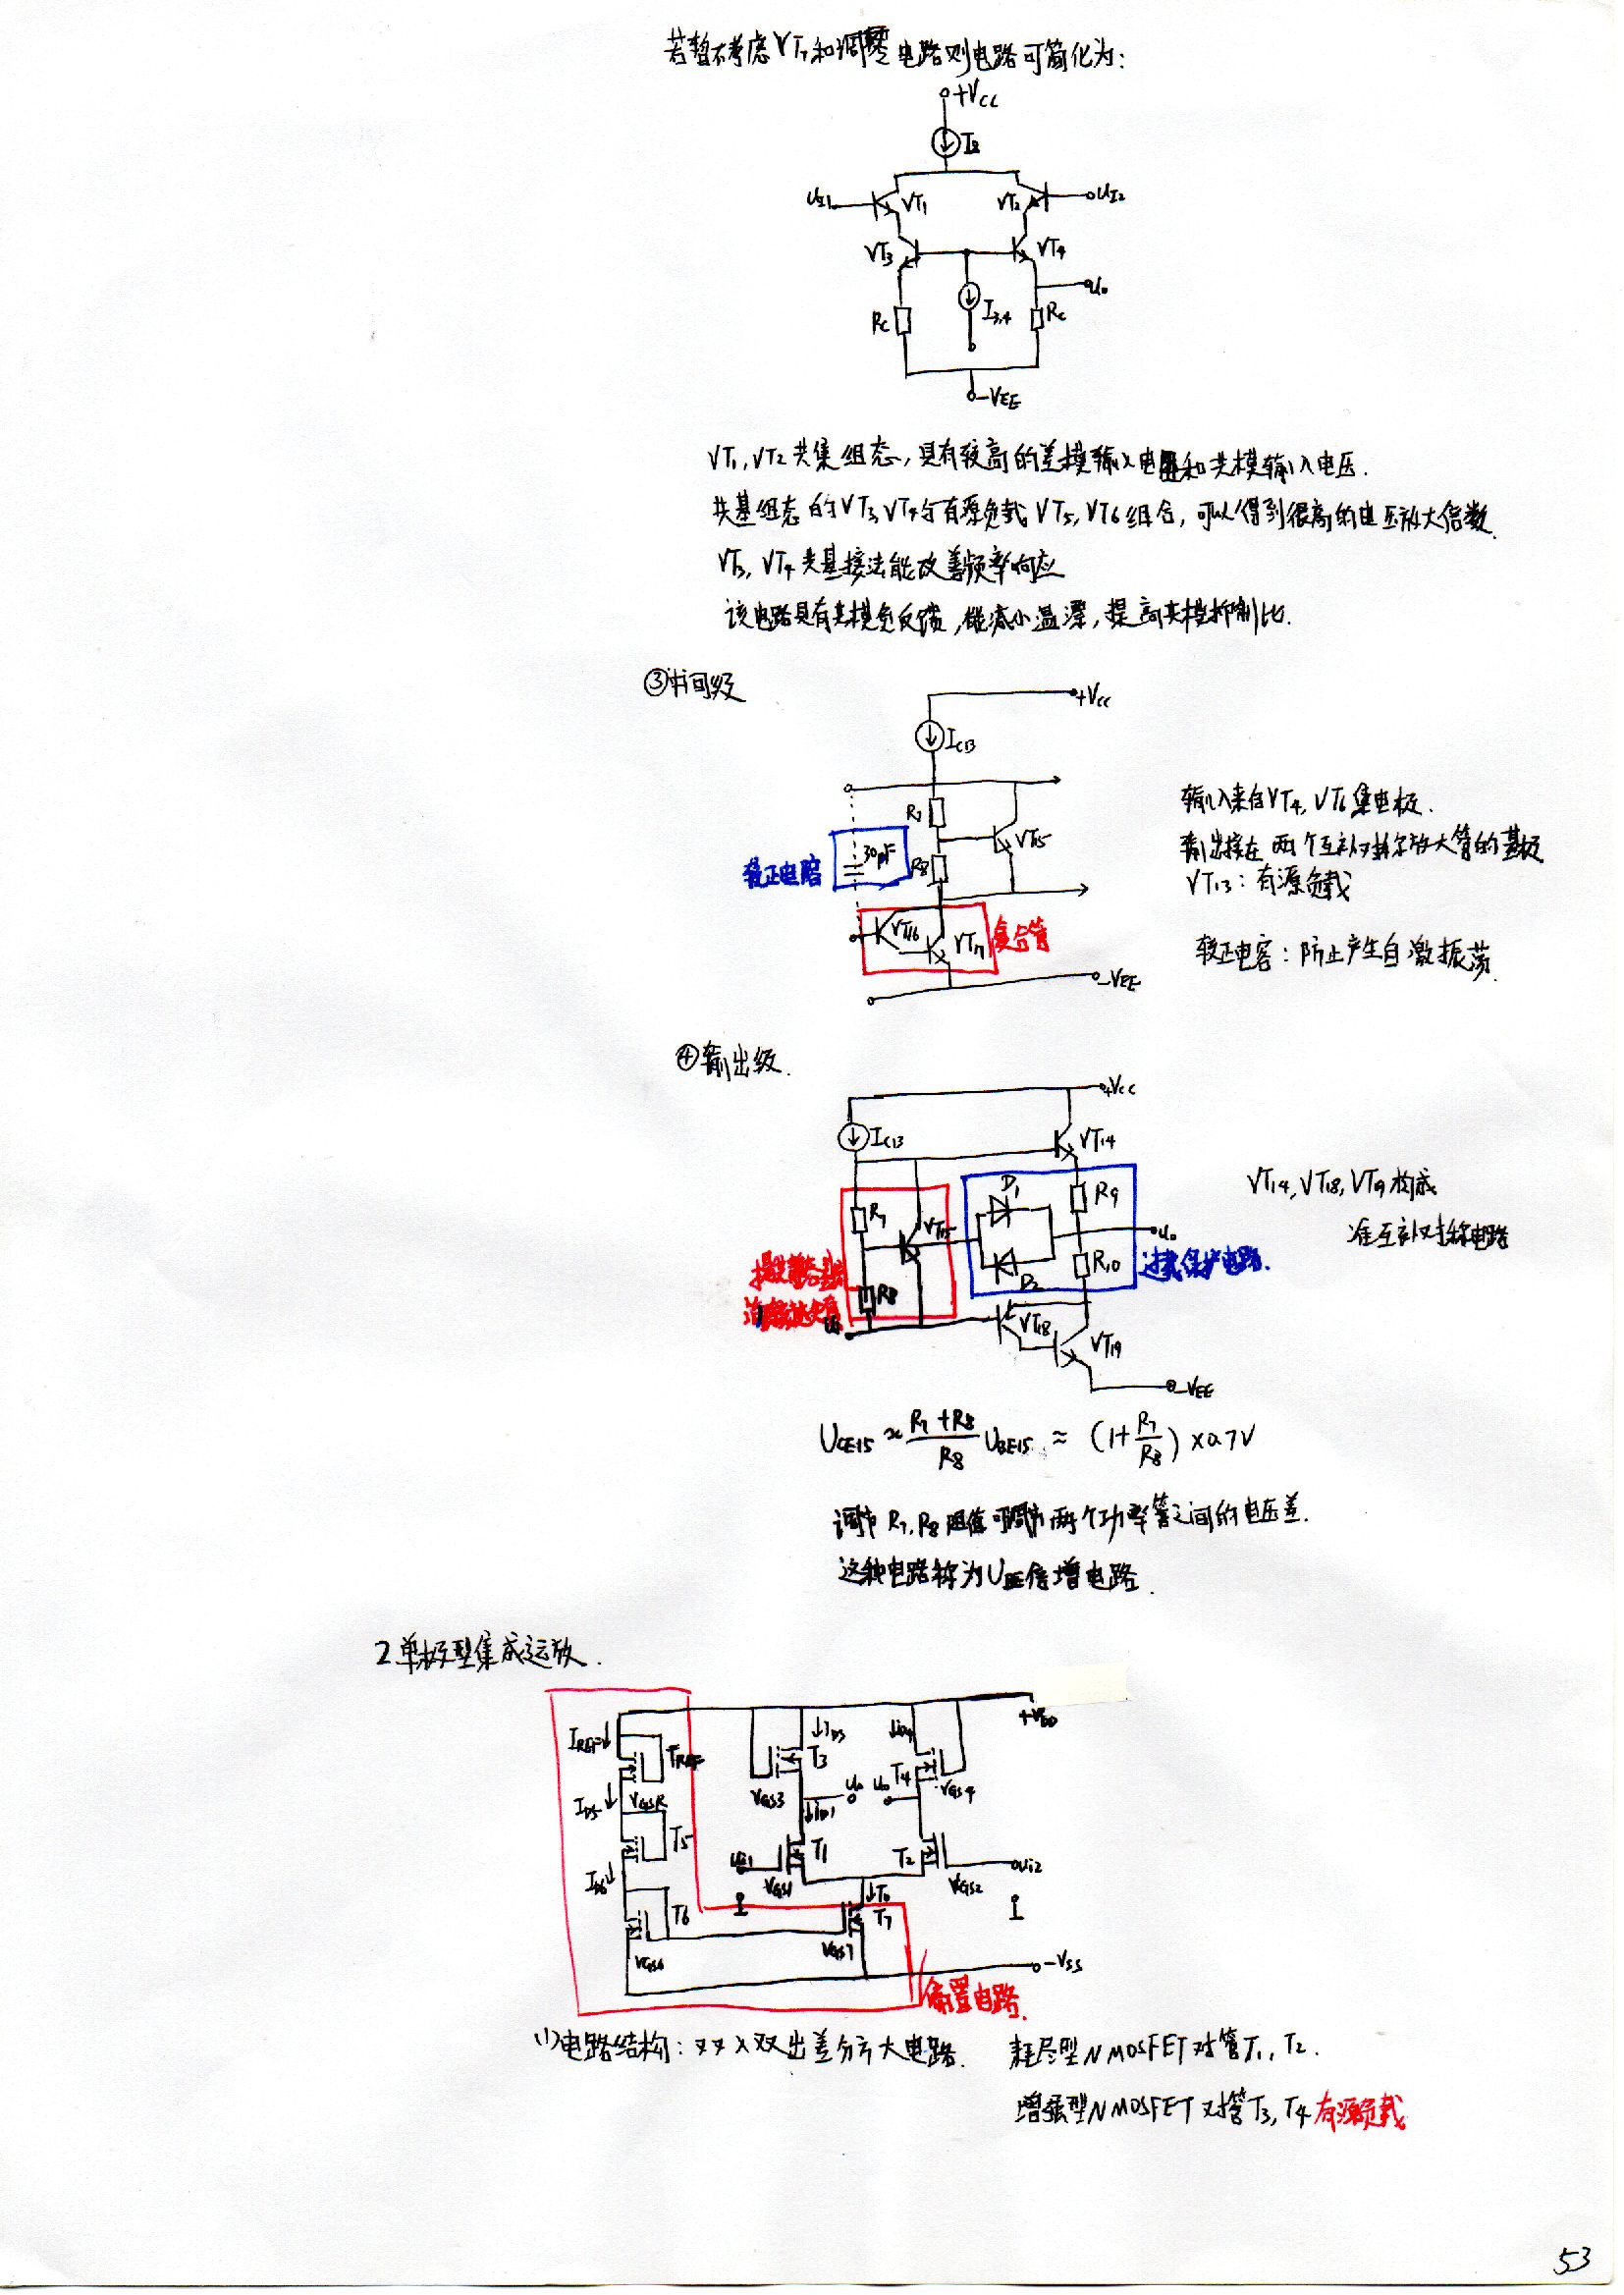 若暂不考虑VT7和调零电路则电路可简化为：
+VCC
I8
UI1
VT1
VT2
UI2
VT3
VT4
Uo
RC
I3,4
RC
-VEE
VT1, VT2共集组态, 具有较高的差模输入电阻和共模输入电压.
共基组态的VT3, VT4与有源负载VT5, VT6组合, 可以得到很高的电压放大倍数.
VT3, VT4共基接法能改善频率响应
该电路具有共模负反馈, 能减小温漂, 提高共模抑制比.
③中间级
+VCC
IC13
R7
VT15
30pF
R8
校正电容
VT16
VT17
复合管
-VEE
输入来自VT4, VT6集电极.
输出接在两个互补对称放大管的基极
VT13：有源负载
校正电容：防止产生自激振荡.
④输出级.
+VCC
IC13
VT14
R7
VT15
D1
R9
Uo
D2
R10
R8
过载保护电路.
VT18
VT19
-VEE
VT14, VT18, VT19构成
准互补对称电路
UCE15 ≈ (R7+R8)/R8 UBE15 ≈ (1+R7/R8)×0.7V
调节R7, R8阻值可调节两个功率管之间的电压差.
这种电路称为UBE倍增电路.
2 单极型集成运放.
+VDD
IREF↓
TREF
↓iD3
T3
↓iD4
T4
VGS3
VGS4
uo
uo
ID5↓
VGSR
T5
↓iD1
ui1
T1
T2
ui2
VGS1
VGS2
ID6↓
T6
↓Io
T7
VGS6
VGS7
-VSS
偏置电路.
(1)电路结构：双入双出差分放大电路. 耗尽型NMOSFET对管T1, T2.
增强型NMOSFET对管T3, T4有源负载
53